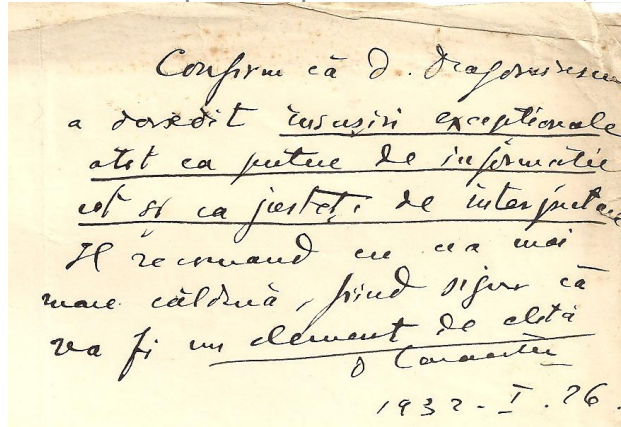 Confirm că D. Dragomirescu
a dovedit însușiri excepționale
atît ca putere de informație
cît și ca justeță de interpretare
Il recomand cu cea mai
mare căldură, fiind sigur că
va fi un element de elită
1932 - I. 26.